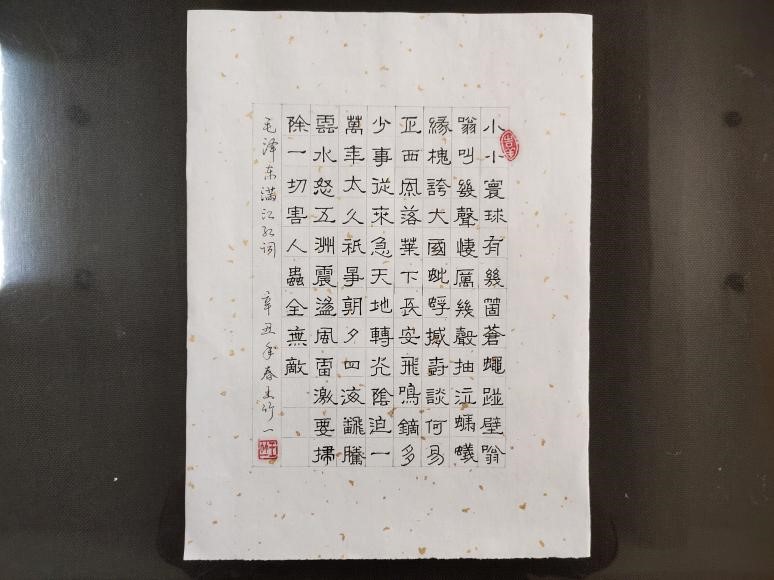 小小寰球有幾箇蒼蠅踫壁嗡
嗡叫幾聲悽厲幾聲抽泣螞蟻
緣槐誇大國蚍蜉撼尌談何易
正西風落葉下長安飛鳴鏑多
少事從來急天地轉光陰迫一
萬年太久祇爭朝夕四海飜騰
雲水怒五洲震盪風雷激要掃
除一切害人蟲全無敵
毛泽东满江红词 辛丑年春竹一